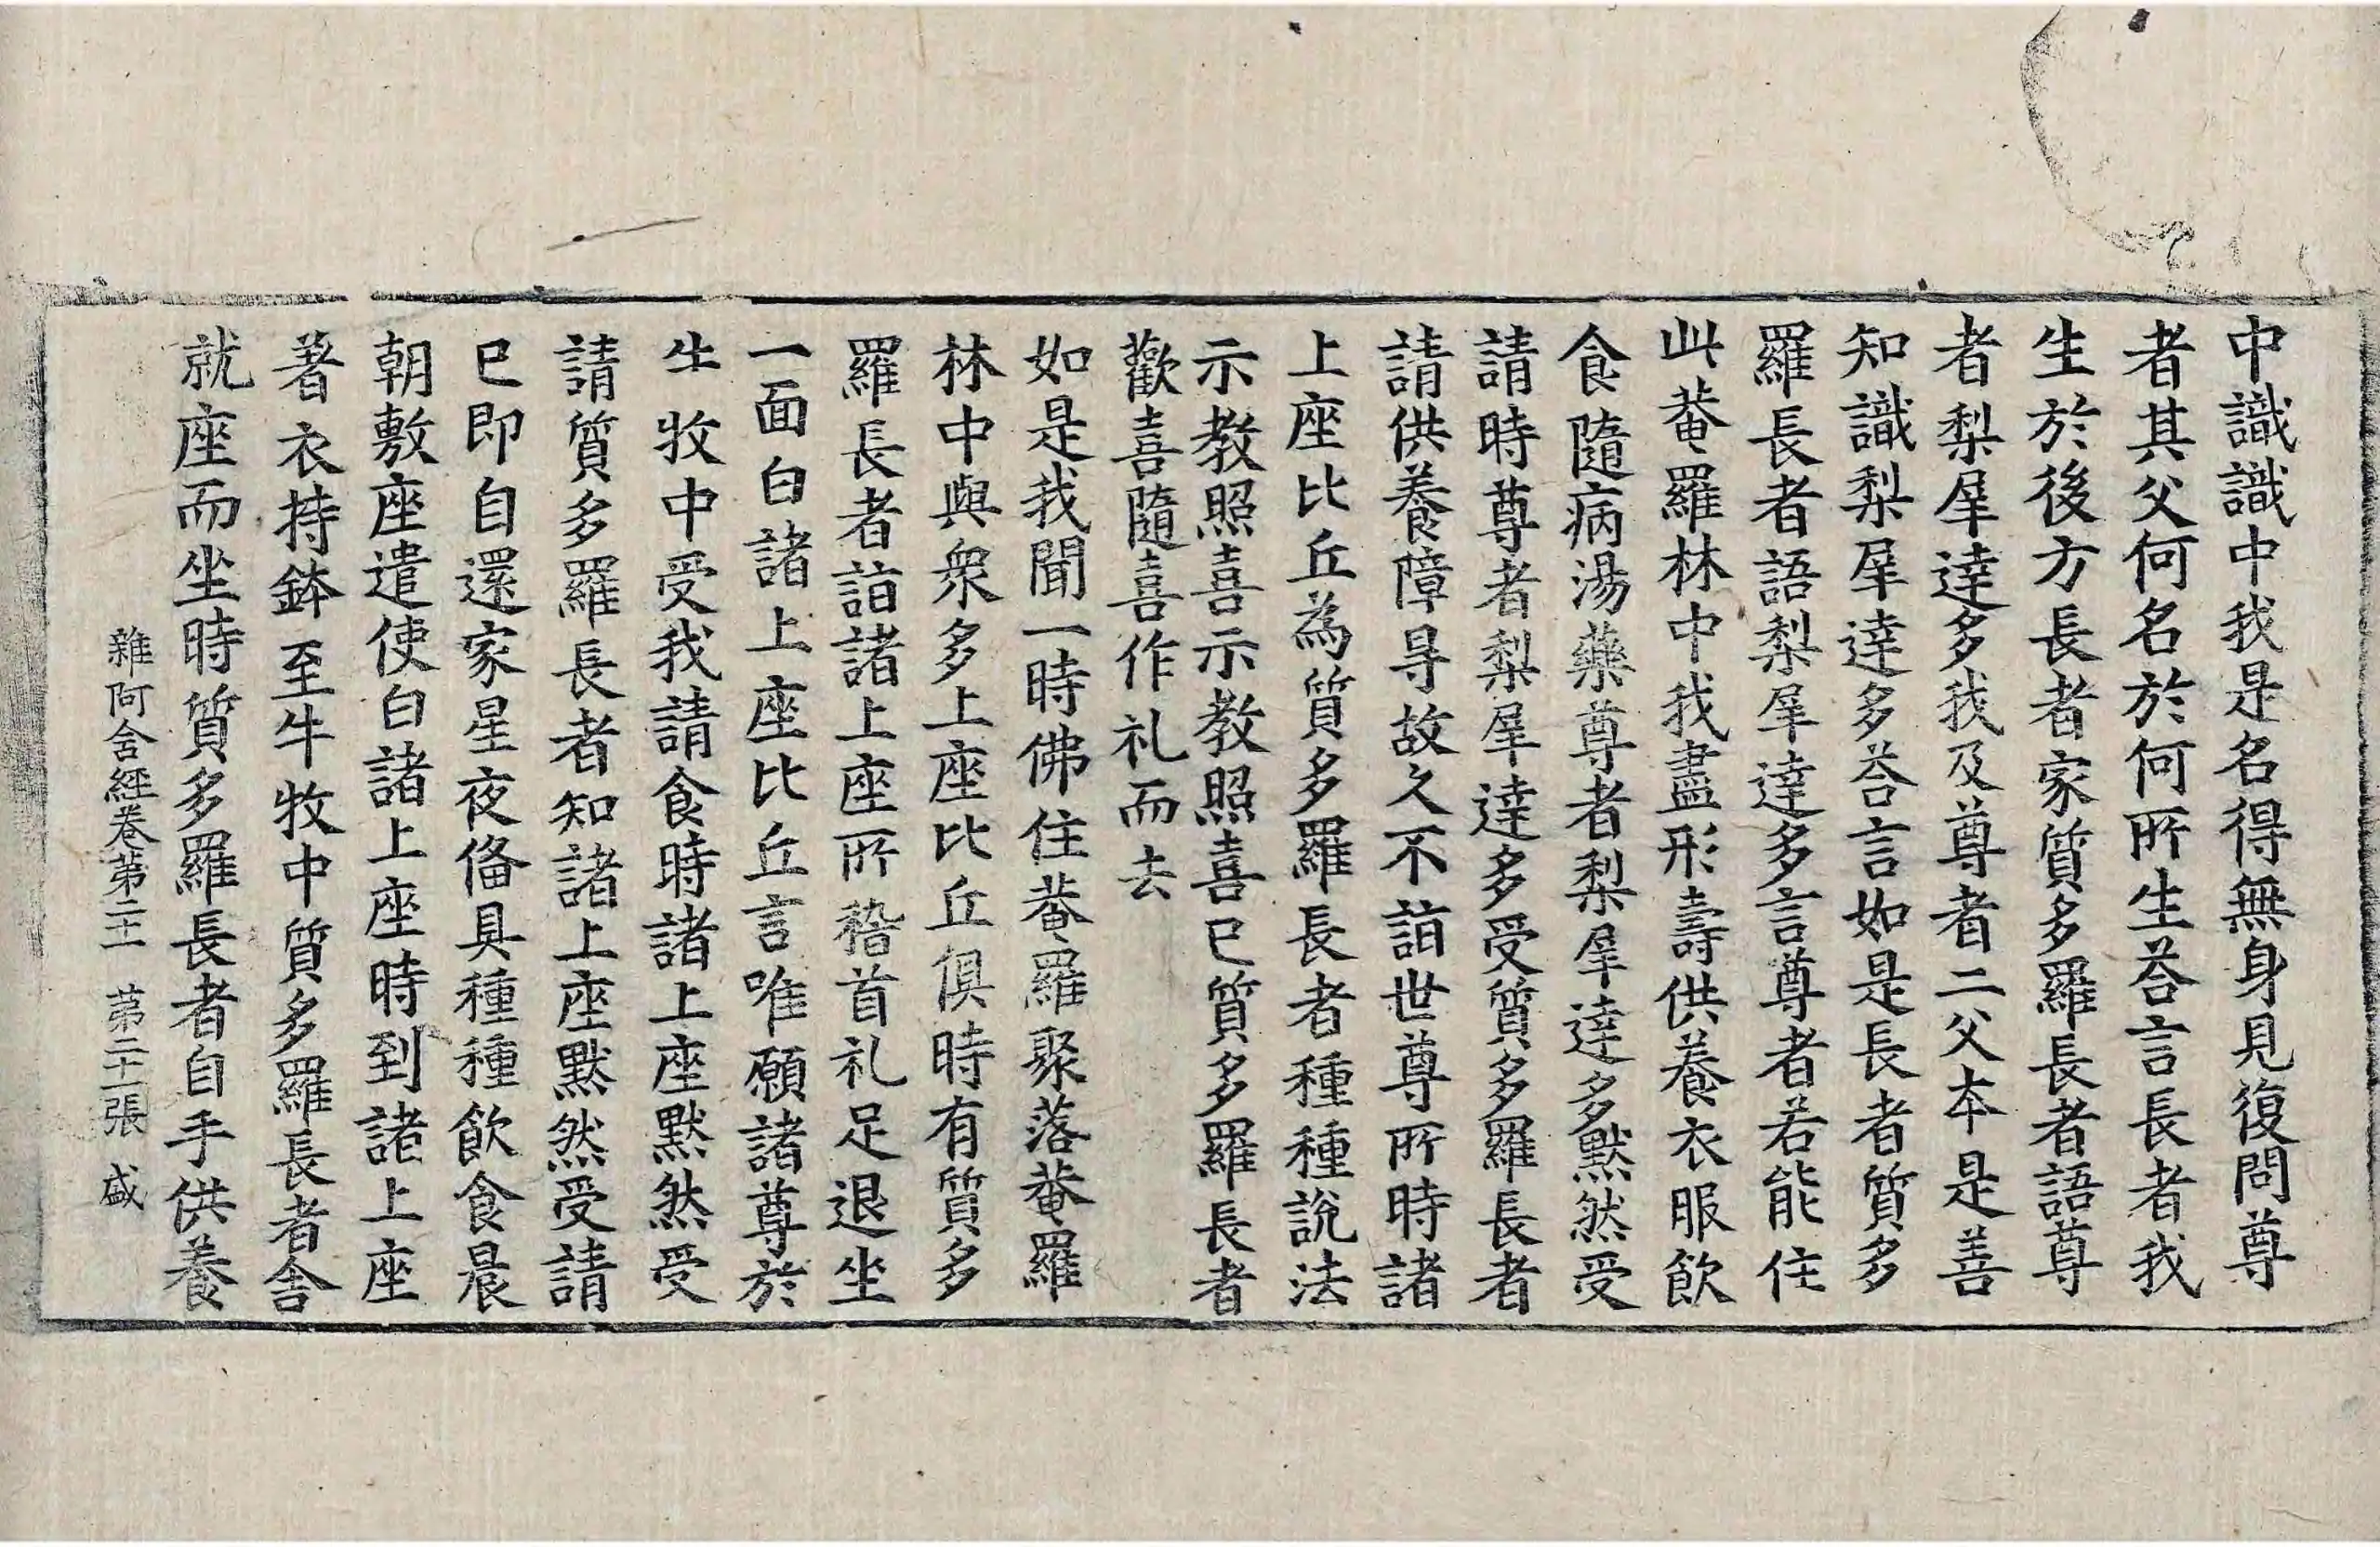 中識識中我是名得無身見復問尊
者其父何名於何所生荅言長者我
生於後方長者家質多羅長者語尊
者梨犀達多我及尊者二父本是善
知識梨犀達多荅言如是長者質多
羅長者語梨犀達多言尊者若能住
此菴羅林中我盡形壽供養衣服飲
食隨病湯藥尊者梨犀達多默然受
請時尊者梨犀達多受質多羅長者
請供養障㝵故久不詣世尊所時諸
上座比丘為質多羅長者種種說法
示教照喜示教照喜已質多羅長者
歡喜隨喜作礼而去
如是我聞一時佛住菴羅聚落菴羅
林中與衆多上座比丘俱時有質多
羅長者詣諸上座所稽首礼足退坐
一面白諸上座比丘言唯願諸尊於
牛牧中受我請食時諸上座默然受
請質多羅長者知諸上座默然受請
已即自還家星夜俻具種種飲食晨
朝敷座遣使白諸上座時到諸上座
著衣持鉢至牛牧中質多羅長者舎
就座而坐時質多羅長者自手供養
雜阿含經卷第二十一 第二十一張 盛